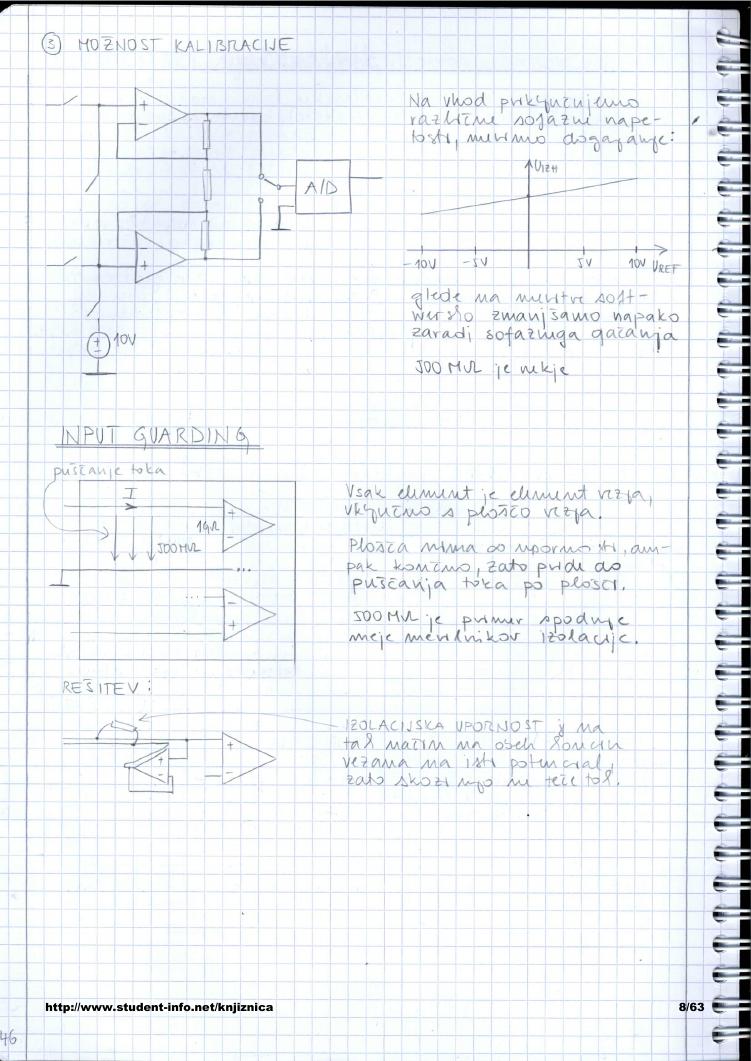 ③ MOŽNOST KALIBRACIJE
+
-
-
+
A/D
±
10V
Na vhod priključujemo
različne sofazne nape-
tosti, merimo dogajanje:
UIZH
-10V
-5V
5V
10V
UREF
glede na meritve soft-
wersko zmanjšamo napako
zaradi sofaznega
500 MΩ je nekje
INPUT GUARDING
puščanje toka
I
1GΩ
500MΩ
+
-
...
...
-
+
Vsak element je element vezja,
vključno s ploščo vezja.
Plošča nima ∞ upornosti, am-
pak končno, zato pride do
puščanja toka po plošči.
500 MΩ je primer spodnje
meje merilnikov izolacije.
REŠITEV:
+
-
+
-
IZOLACIJSKA UPORNOST je na
tak način na obeh koncih
vezana na isti potencial,
zato skozi njo ne teče tok.
http://www.student-info.net/knjiznica
8/63
46